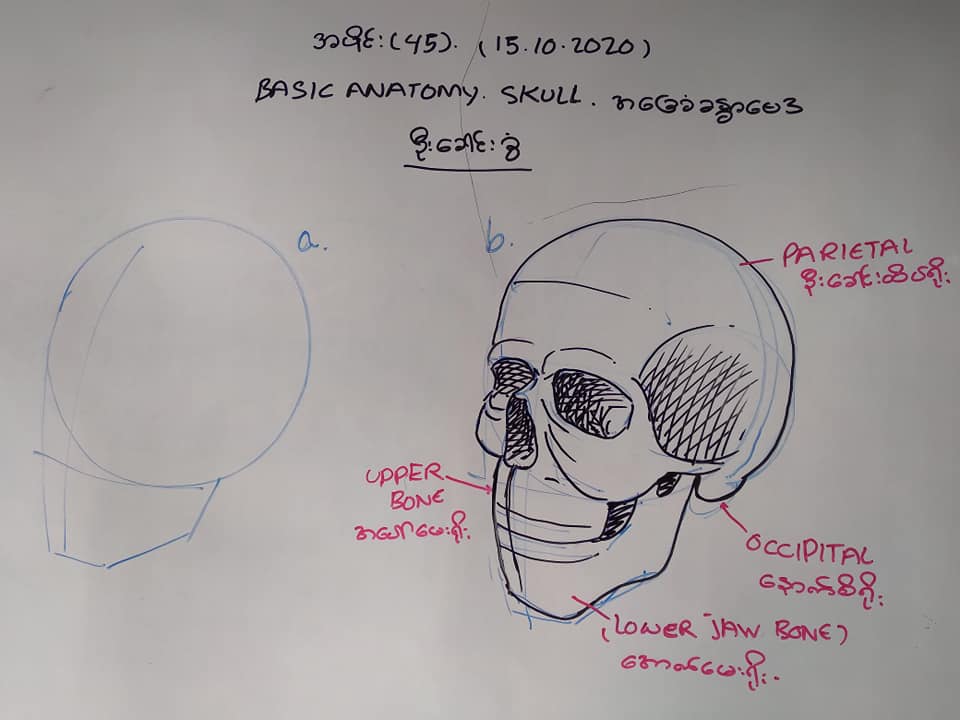 အပိုင်း (45). (15.10.2020)
BASIC ANATOMY. SKULL. အခြေခံခန္ဓာဗေဒ
ဦးခေါင်းခွံ
a.
b.
PARIETAL
ဦးခေါင်းထိပ်ရိုး
UPPER
BONE
အပေါ်မေးရိုး
OCCIPITAL
နောက်စိရိုး
(LOWER JAW BONE)
အောက်မေးရိုး.